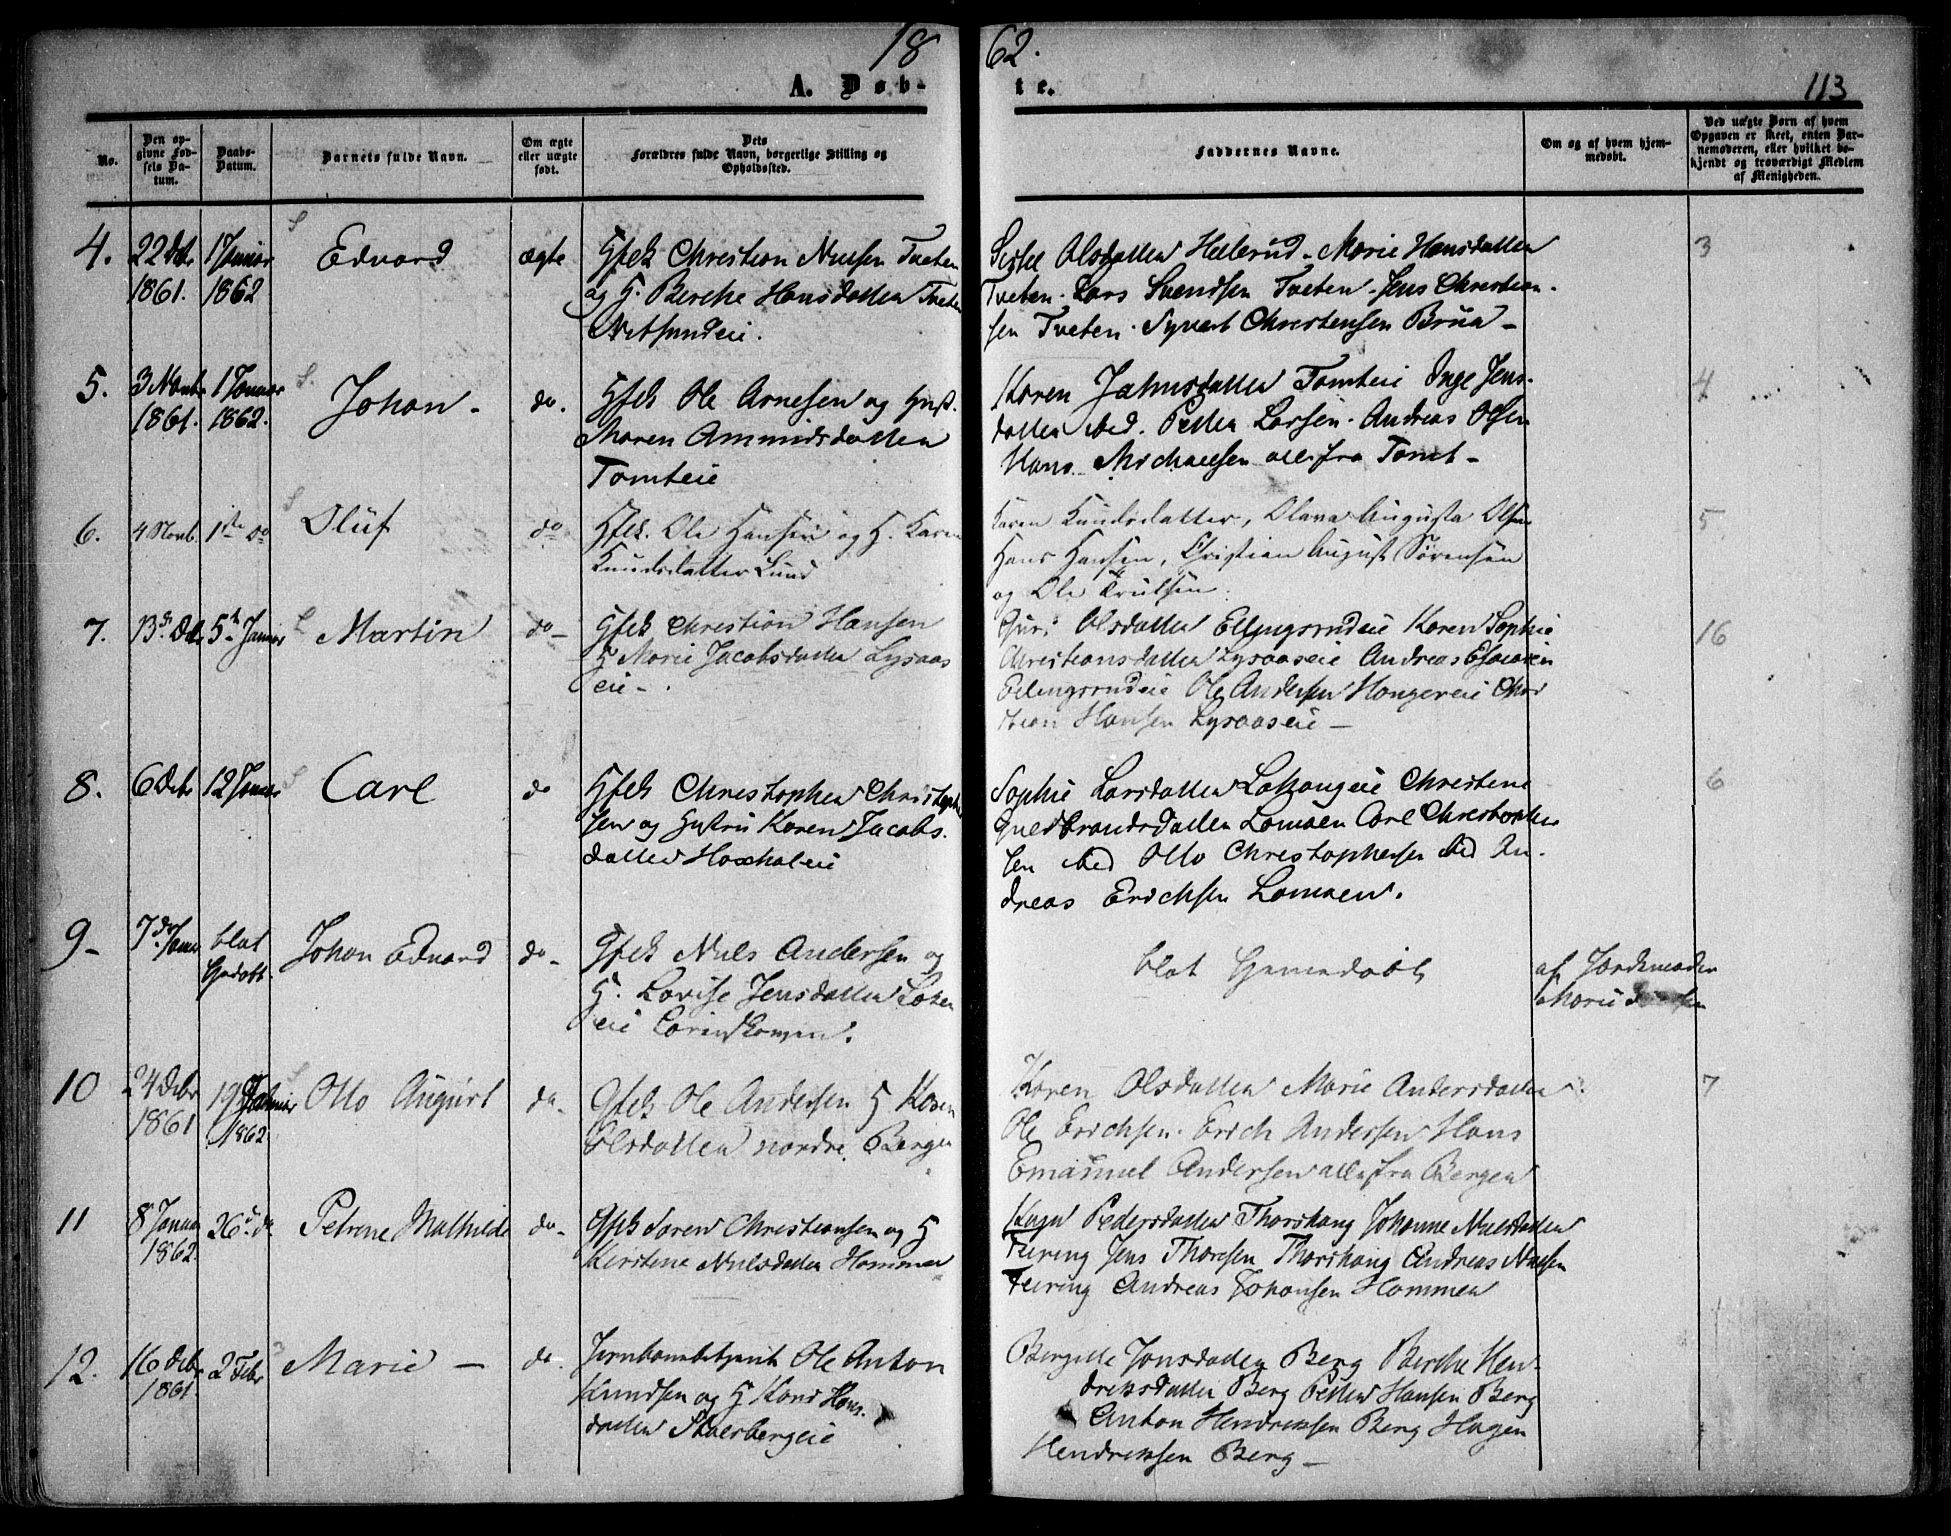 18 62.
A. Døb- te.
113
No.
Den op-
givne Fød-
sels Da-
tum.
Daabs-
Datum.
Barnets fulde Navn.
Om ægte
eller uægte
født.
Dets
Forældres fulde Navn, borgerlige Stilling og
Opholdssted.
Faddernes Navne.
Om og af hvem hjem-
medøbt.
Ved uægte Børn af hvem
Opgaven er skeet, enten Bar-
nemoderen, eller hvilket be-
kjendt og troværdigt Medlem
af Menigheden.
4. 22 Dcbr 1 Januar Edvard ægte
1861. 1862
Gfolk Christian Nielsen Tveten
og H. Berthe Hansdatter Tveten
Sidsel Olsdatter Hellerud. Marie Hansdatter
Tveten. Lars Svendsen Tveten. Jens Christian-
sen Tveten. Syvert Christensen Brua
3
5. 3 Novbr 1 Januar Johan do.
1861. 1862.
Gfolk Ole Arnesen og Hust.
Maren Ammundsdatter
Tomteie
Karen Jahnsdatter Tomteie Inge Jens-
datter ibed. Petter Larsen. Andreas Olsen
Hans Michaelsen alle fra Tomt
4
6. 4 Novb. 1ste do Oluf do
Gflk. Ole Hansen og H. Karen
Knudsdatter Lund
Karen Knudsdatter, Olava Augusta Olsen
Hans Hansen, Christian August Sørensen
og Ole Truelsen.
5
7. 13de Dcbr 5te Januar Martin do
Gfolk Christian Hansen
H Marie Jacobsdatter Lysaas
eie
Guri Olsdatter Ellingsrudeie Karen Sophie
Christiansdatter Lysaaseie Andreas Esaiasen
Ellingsrudeie Ole Andersen Haugereie Chri
stian Hansen Lysaaseie
16
8. 6 Dcbr 12 Januar Carl do
Gfolk Christopher Christophe
sen og Hustru Karen Jacobs-
datter
Sophie Larsdatter Christine
Gulbrandsdatter Lomaen Carl Christophe
sen ibed Otto Christophersen ibed An-
dreas Erichsen Lomaen.
6
9 7de Januar blot Johan Edvard do
hjdøbt.
Gfolk Niels Andersen og
H. Lovise Jensdatter Loken
eie
blot hjemmedøbt
af Jordemoder
Marie
10 24 Dcbr 19 Januar Otto August do
1861 1862
Gfolk Ole Andersen H Karen
Olsdatter nordre Bergen
Karen Olsdatter Marie Andersdatter
Ole Erichsen. Erich Andersen Hans
Emanuel Andersen alle fra Bergen
7
11 8 Januar 26de do Petrine Mathilde do
1862.
Gfolk Søren Christiansen og H
Kirstine Nielsdatter Hammer
Pedersdatter Thorshaug Johanne Nielsdatter
Feiring Jens Thoresen Thorshaug Andreas Nielsen
Feiring Andreas Johansen Hammer
12. 16 Dcbr 2 Febr Marie do.
1861.
Jernbanebetjent Ole Anton
Knudsen og H Kari Hans-
datter Skaersbergeie
Bergitte Jonsdatter Berg Berthe Hen-
driksdatter Berg Petter Hansen Berg
Anton Hendriksen Berg Hagen
Hendriksen Berg